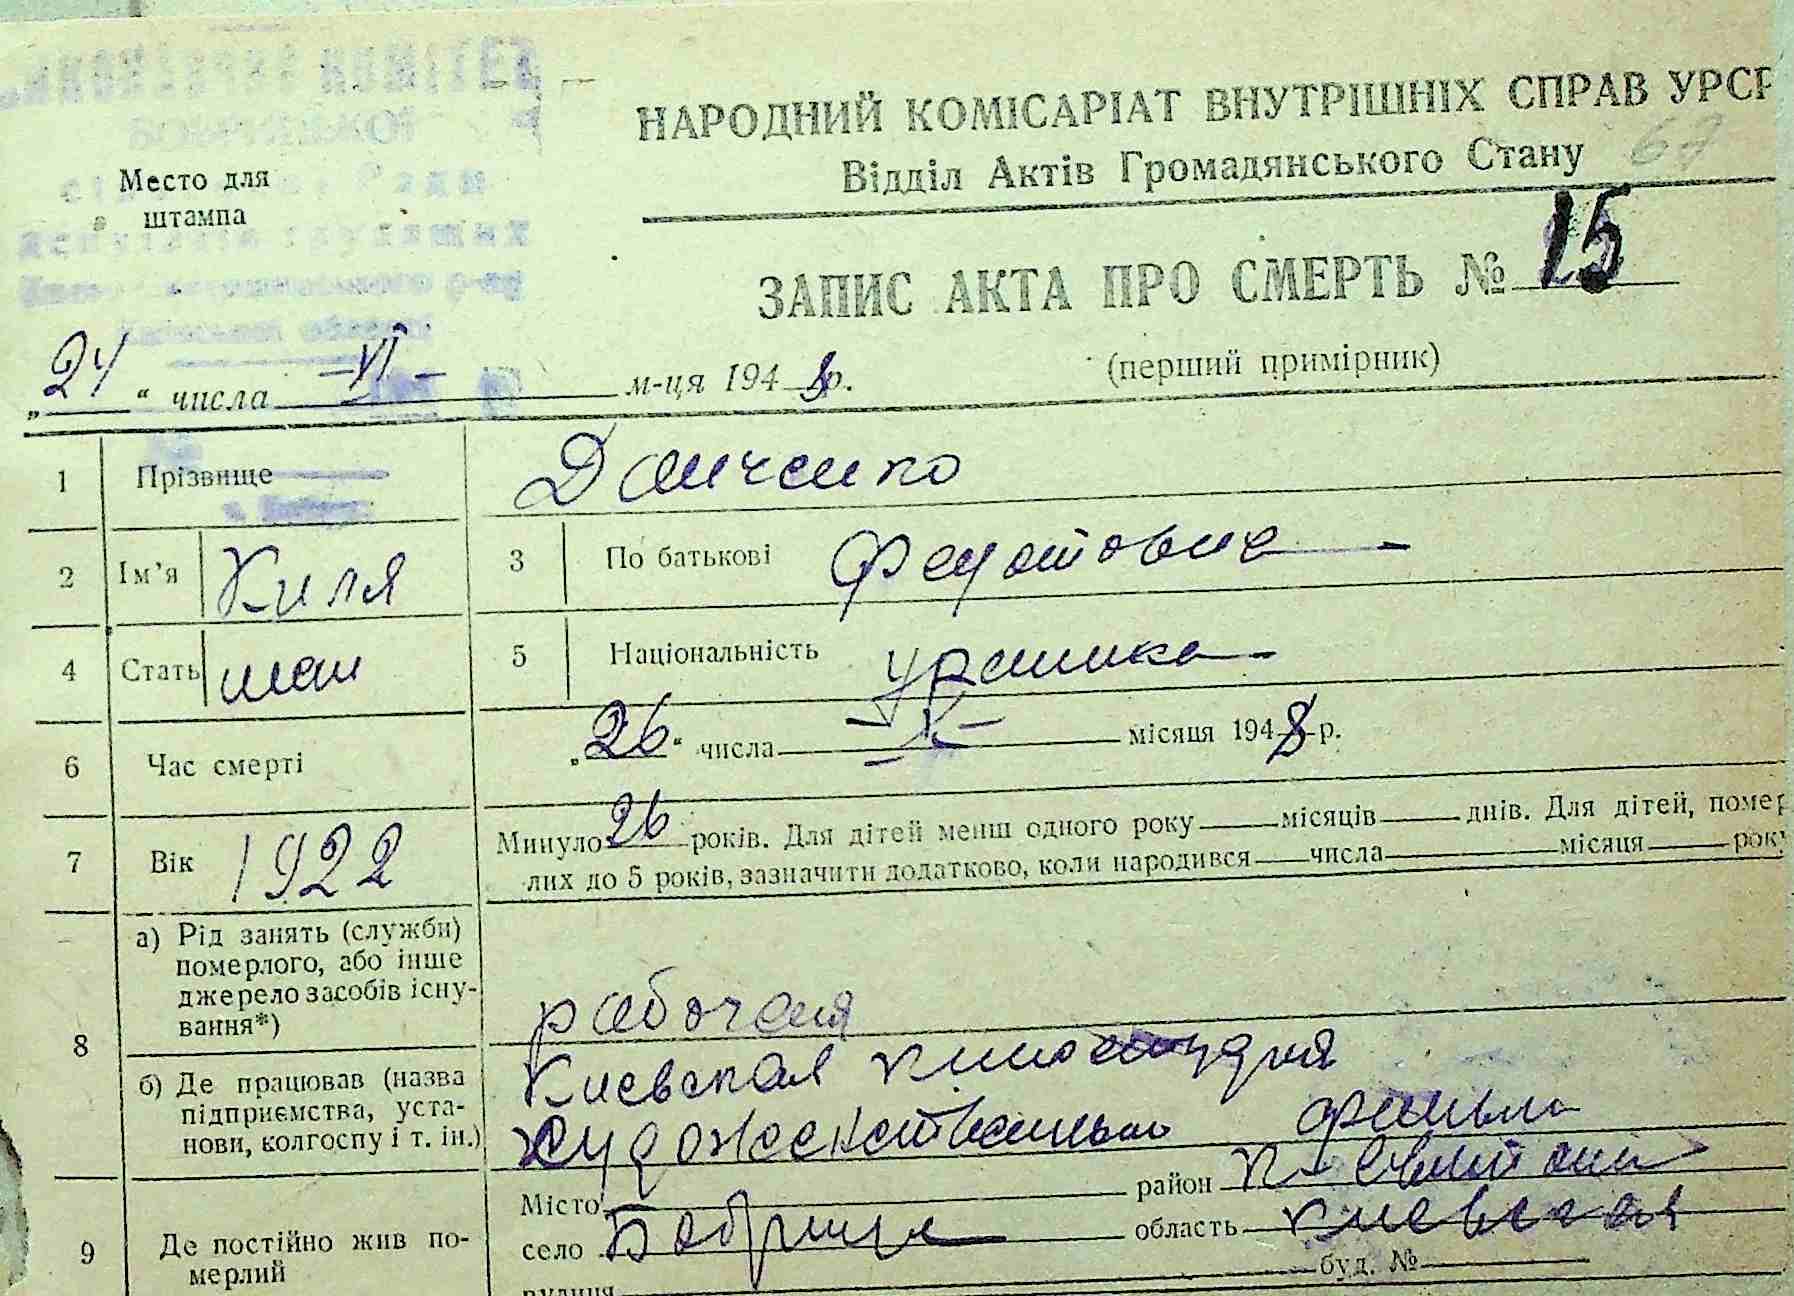 НАРОДНИЙ КОМІСАРІАТ ВНУТРІШНІХ СПРАВ УРСР
Відділ Актів Громадянського Стану 67
Место для
штампа
ЗАПИС АКТА ПРО СМЕРТЬ № 15
(перший примірник)
„24“ числа VI м-ця 1948 р.
1 Прізвище Данченко
2 Ім’я Киля 3 По батькові Федотовна
4 Стать жен 5 Національність украинка
6 Час смерті „26“ числа X місяця 1948 р.
7 Вік 1922 Минуло 26 років. Для дітей менш одного року місяців днів. Для дітей, помер
лих до 5 років, зазначити додатково, коли народився числа місяця року
8 а) Рід занять (служби)
померлого, або інше
джерело засобів існу-
вання*)
рабочая
б) Де працював (назва
підприємства, уста-
нови, колгоспу і т. ін.)
Киевская киностудия
художественных фильмов
9 Де постійно жив по-
мерлий
Місто район К-Святошин
село Бобрица область Киевская
вулиця буд. №